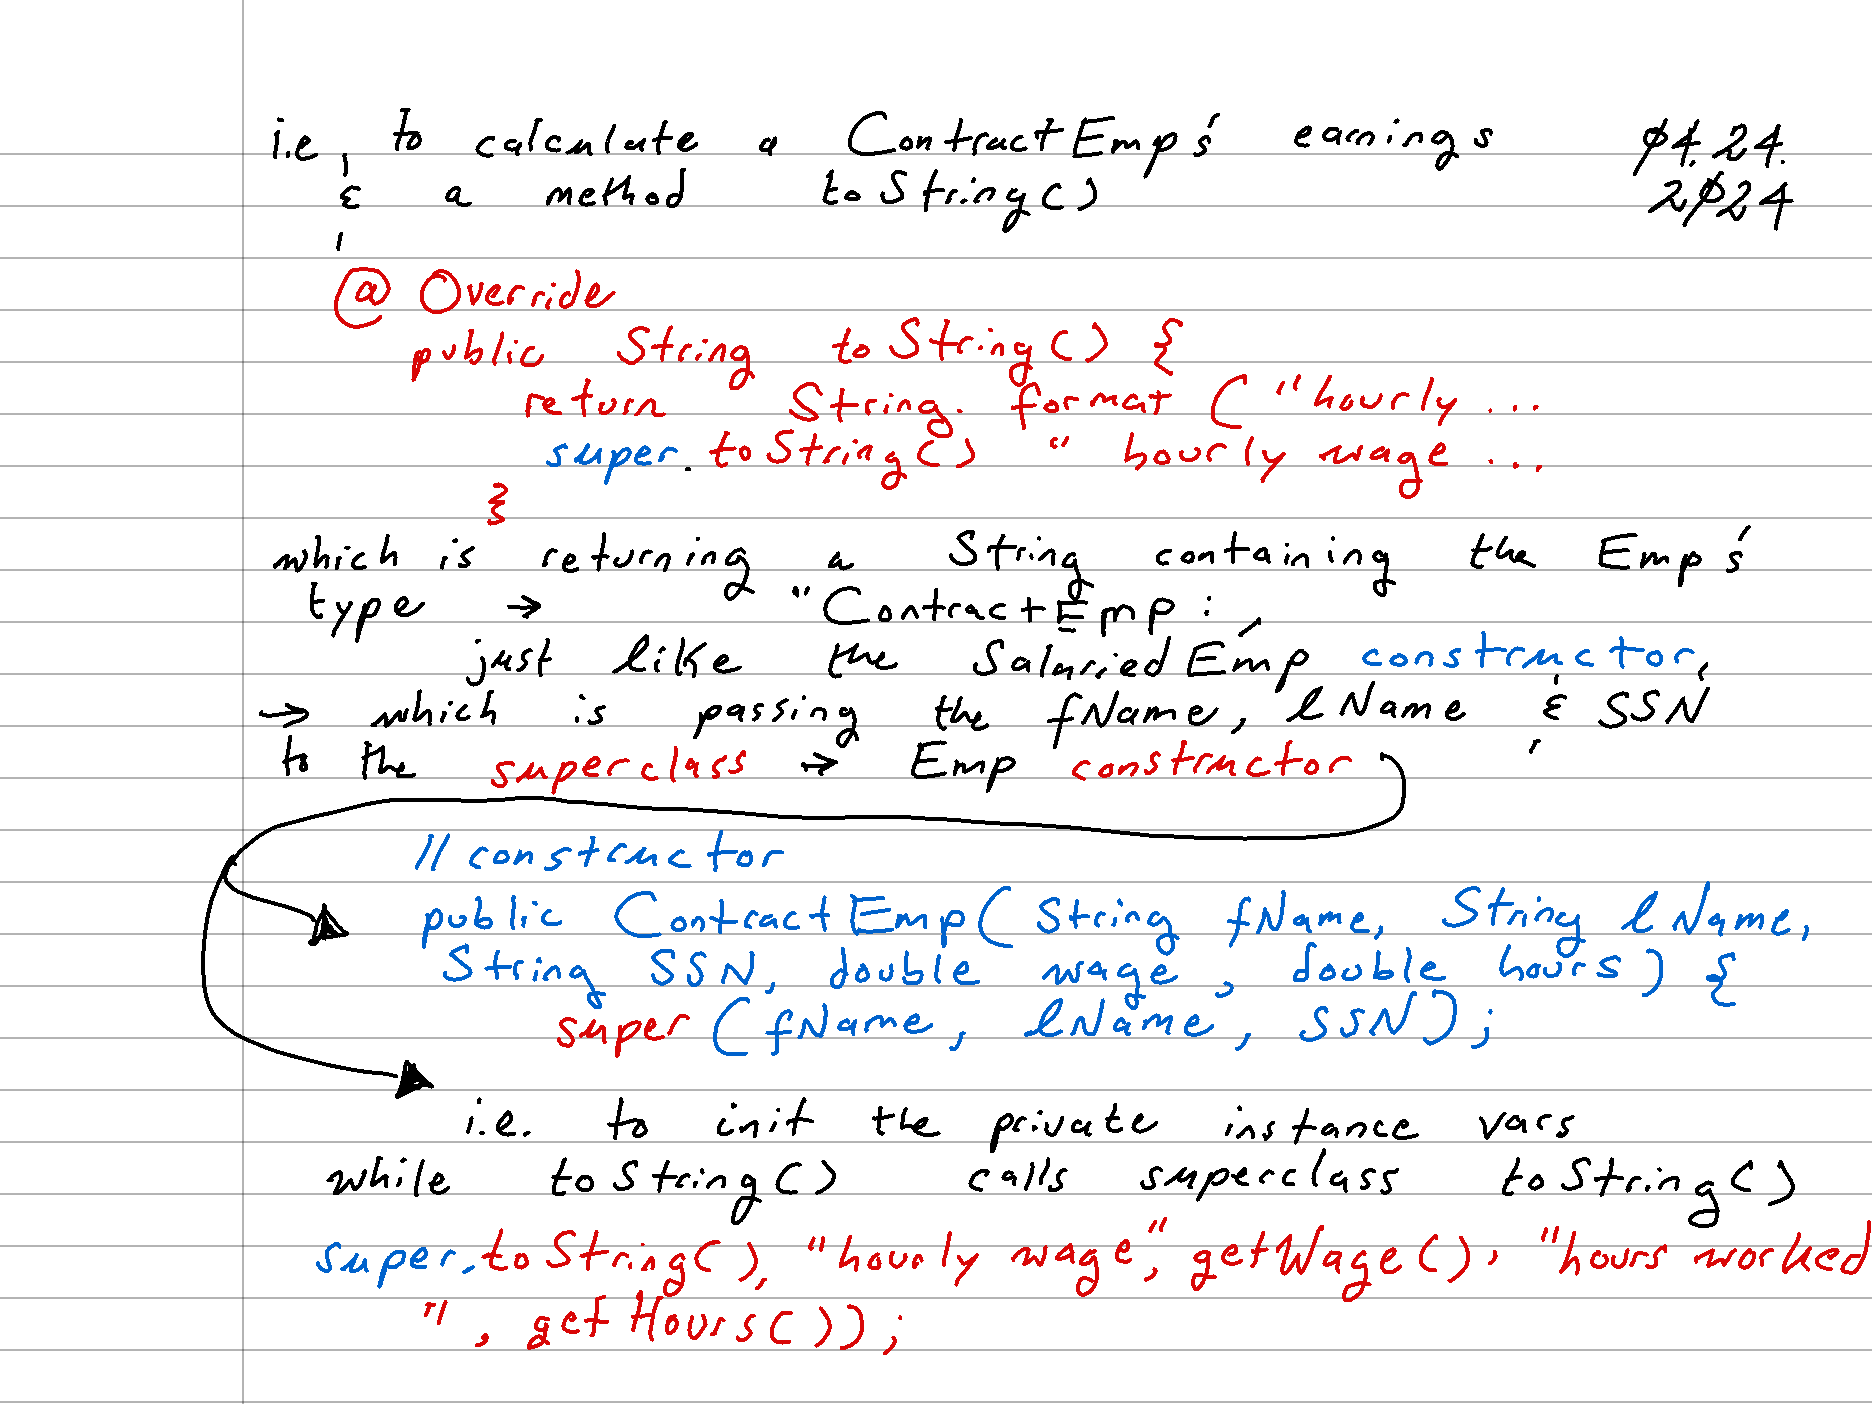 i.e, to calculate a ContractEmp's earnings 04.24.
& a method toString() 2024
@Override
public String toString() {
return String.format("hourly ...
super.toString() " hourly wage ...
}
which is returning a String containing the Emp's
type → "ContractEmp:
just like the SalariedEmp constructor,
→ which is passing the fName, lName & SSN
to the superclass → Emp constructor
// constructor
public ContractEmp(String fName, String lName,
String SSN, double wage, double hours) {
super(fName, lName, SSN);
i.e. to init the private instance vars
while toString() calls superclass toString()
super.toString(), "hourly wage", getWage(), "hours worked
", getHours());